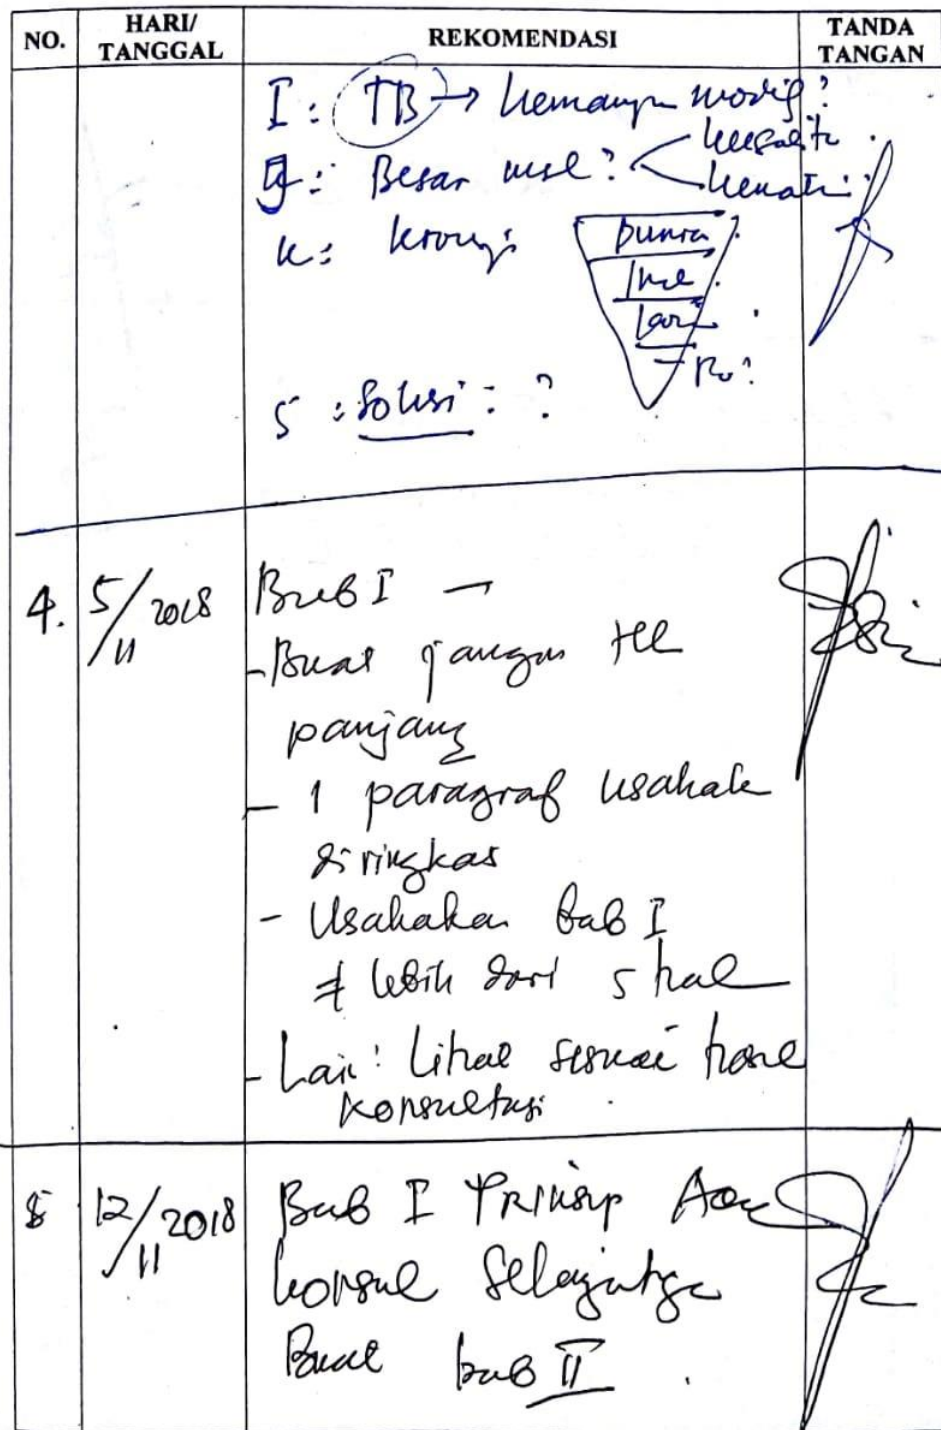 NO. HARI/ TANGGAL REKOMENDASI TANDA TANGAN
I : TB → 
: Besar msl ?
k :
5 : Solusi : ?
4. 5/11 2018 Bab I –
- Buat jangan tll
panjang
- 1 paragraf usahak
diringkas
- Usahakan bab I
≠ lebih dari 5 hal
- Lain : Lihat sesuai hasil
konsultasi
5 12/11 2018 Bab I Prinsip Acc
konsul selanjutnya
Buat bab II